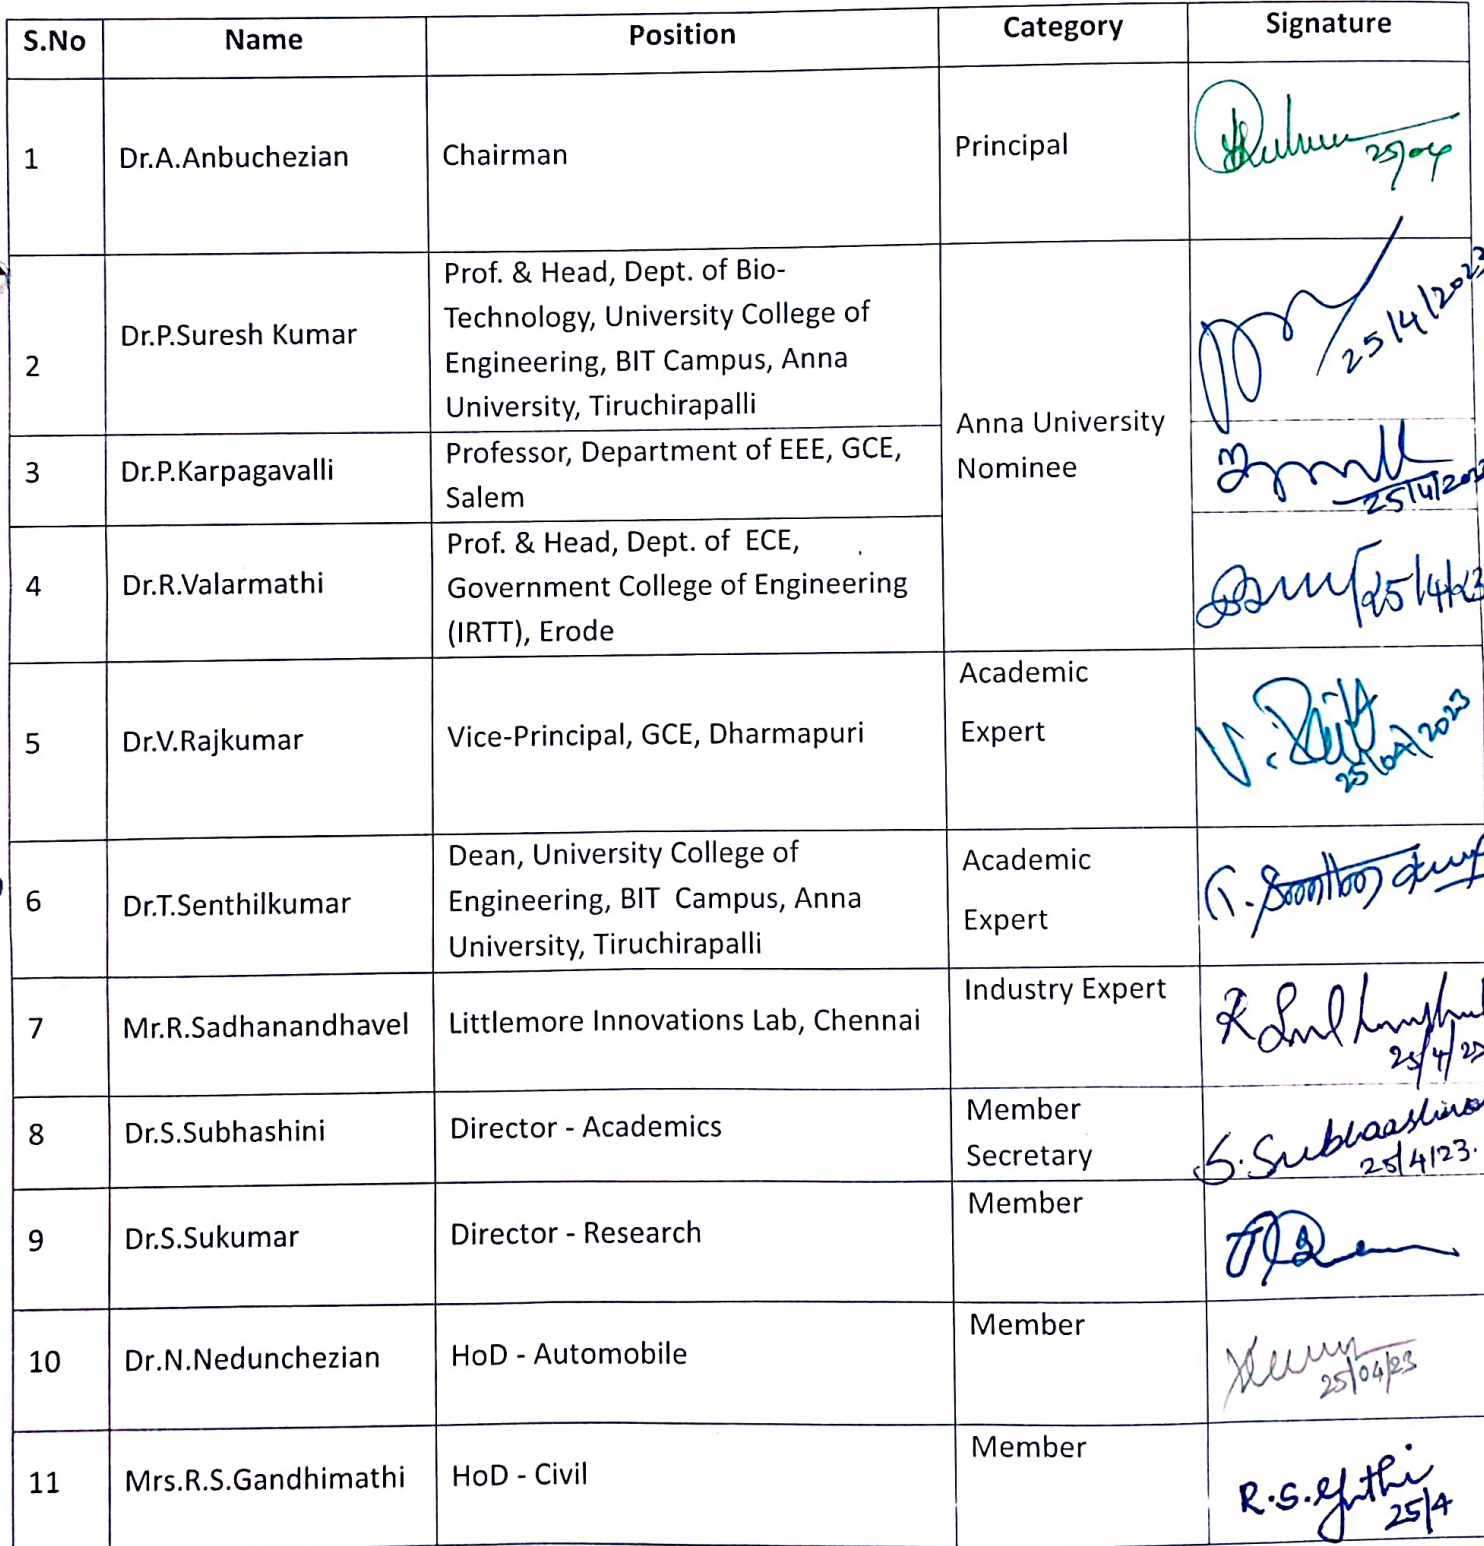 S.No Name Position Category Signature
1 Dr.A.Anbuchezian Chairman Principal
25/04
2 Dr.P.Suresh Kumar
Prof. & Head, Dept. of Bio-
Technology, University College of
Engineering, BIT Campus, Anna
University, Tiruchirapalli
Anna University
Nominee
25/4/2023
3 Dr.P.Karpagavalli
Professor, Department of EEE, GCE,
Salem
25/4/202
4 Dr.R.Valarmathi
Prof. & Head, Dept. of ECE,
Government College of Engineering
(IRTT), Erode
25/4/23
5 Dr.V.Rajkumar Vice-Principal, GCE, Dharmapuri
Academic
Expert
V.
25/04/2023
6 Dr.T.Senthilkumar
Dean, University College of
Engineering, BIT Campus, Anna
University, Tiruchirapalli
Academic
Expert
T.
7 Mr.R.Sadhanandhavel Littlemore Innovations Lab, Chennai Industry Expert
R
25/4/23
8 Dr.S.Subhashini Director - Academics
Member
Secretary
S.
25/4/23.
9 Dr.S.Sukumar Director - Research Member
10 Dr.N.Nedunchezian HoD - Automobile Member
25/04/23
11 Mrs.R.S.Gandhimathi HoD - Civil Member
R.S.
25/4